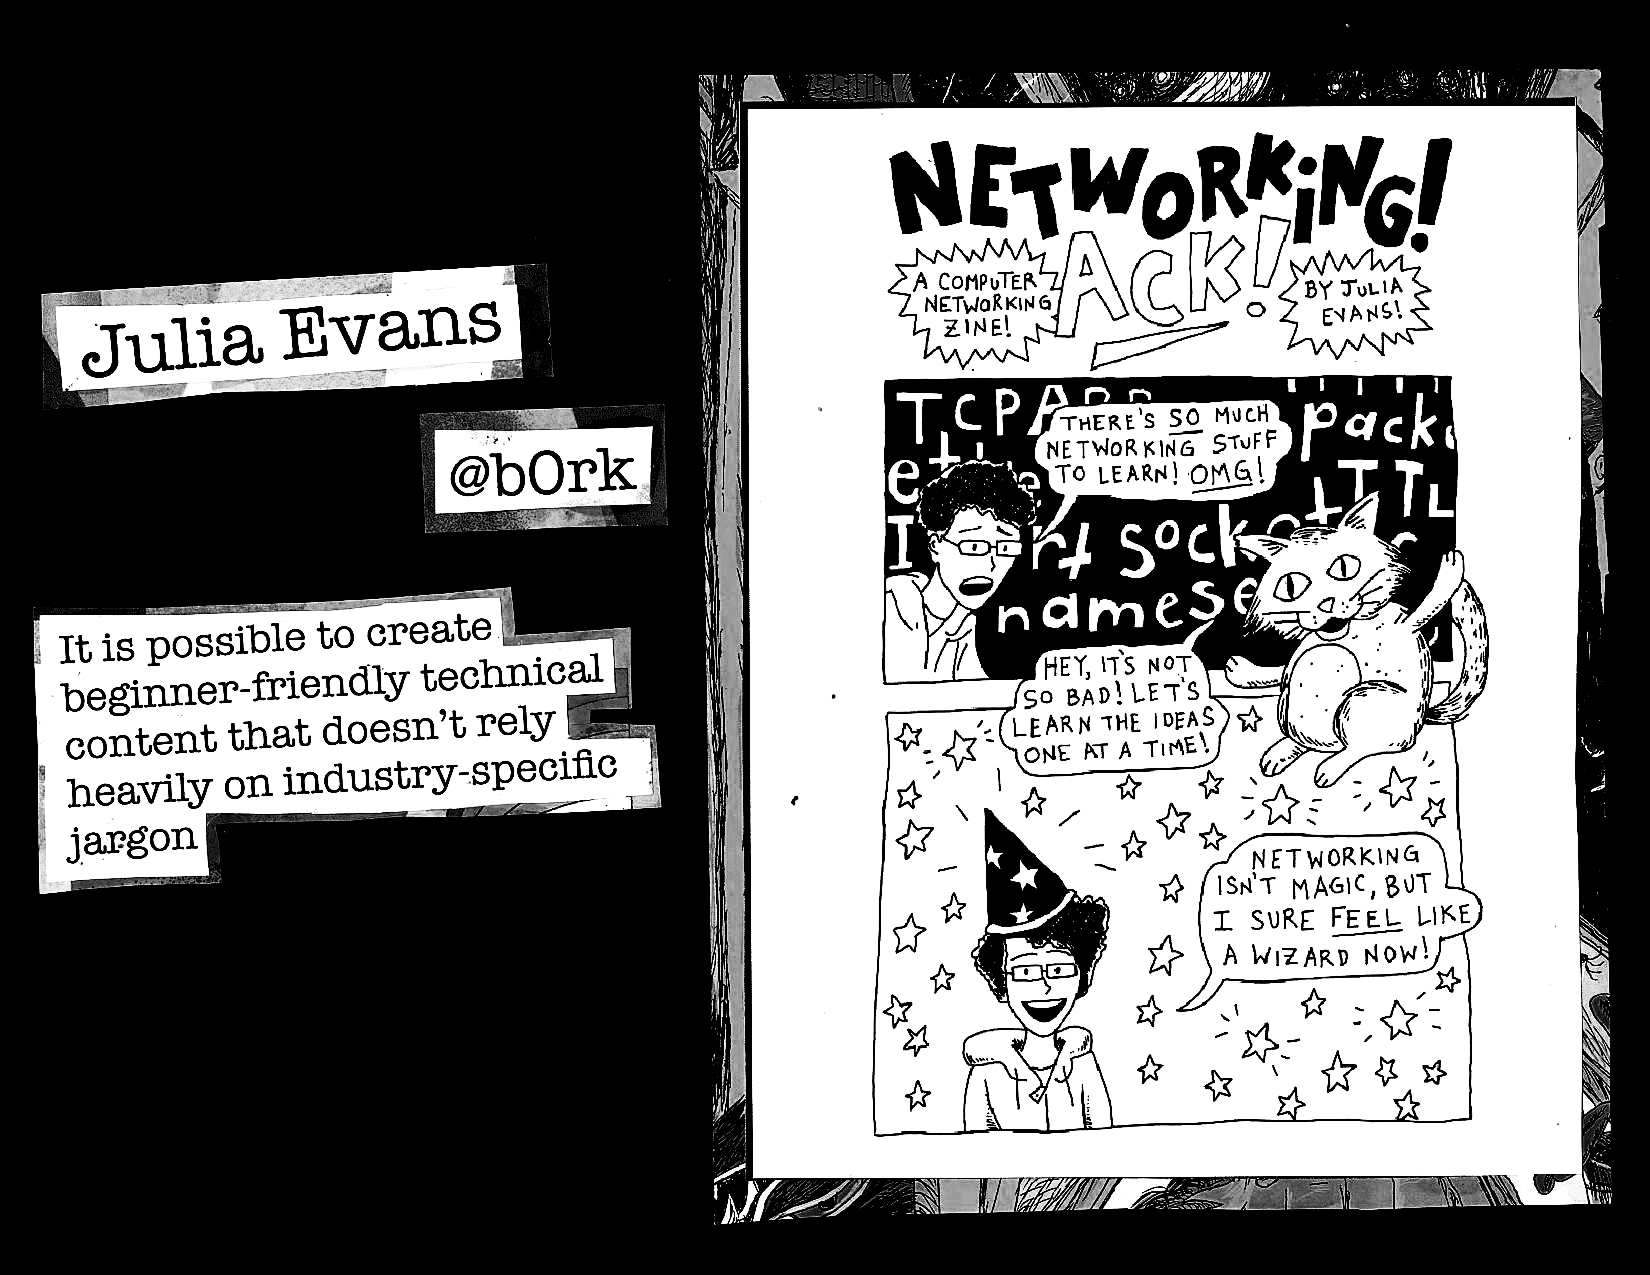 Julia Evans
@b0rk
It is possible to create
beginner-friendly technical
content that doesn't rely
heavily on industry-specific
jargon
NETWORKiNG!
ACK!
A COMPUTER
NETWORKING
ZINE!
BY JULIA
EVANS!
TCP ARP
pack
THERE'S SO MUCH
NETWORKING STUFF
TO LEARN! OMG!
TTL
sock
namese
HEY, IT'S NOT
SO BAD! LET'S
LEARN THE IDEAS
ONE AT A TIME!
NETWORKING
ISN'T MAGIC, BUT
I SURE FEEL LIKE
A WIZARD NOW!